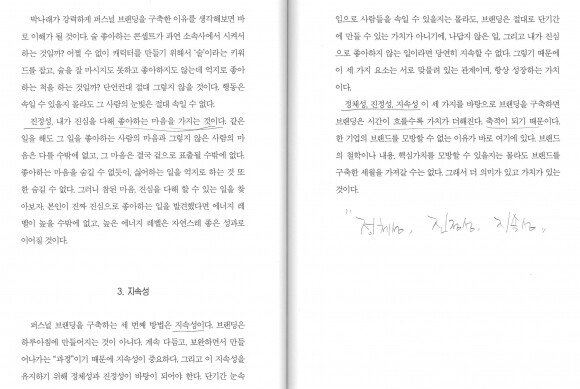 박나래가 강력하게 퍼스널 브랜딩을 구축한 이유를 생각해보면 바
로 이해가 될 것이다. 술 좋아하는 콘셉트가 과연 소속사에서 시켜서
하는 것일까? 어쩔 수 없이 캐릭터를 만들기 위해서 ‘술’이라는 키워
드를 잡고, 술을 잘 마시지도 못하고 좋아하지도 않는데 억지로 좋아
하는 척을 하는 것일까? 단언컨대 절대 그렇지 않을 것이다. 행동은
속일 수 있을지 몰라도 그 사람의 눈빛은 절대 속일 수 없다.
진정성, 내가 진심을 다해 좋아하는 마음을 가지는 것이다. 같은
일을 해도 그 일을 좋아하는 사람의 마음과 그렇지 않은 사람의 마
음은 다를 수밖에 없고, 그 마음은 결국 겉으로 표출될 수밖에 없다.
좋아하는 마음을 숨길 수 없듯이, 싫어하는 일을 억지로 하는 것 또
한 숨길 수 없다. 그러니 참된 마음, 진심을 다해 할 수 있는 일을 찾
아보자. 본인이 진짜 진심으로 좋아하는 일을 발견했다면 에너지 레
벨이 높을 수밖에 없고, 높은 에너지 레벨은 자연스레 좋은 성과로
이어질 것이다.
3. 지속성
퍼스널 브랜딩을 구축하는 세 번째 방법은 지속성이다. 브랜딩은
하루아침에 만들어지는 것이 아니다. 계속 다듬고, 보완하면서 만들
어나가는 “과정”이기 때문에 지속성이 중요하다. 그리고 이 지속성을
유지하기 위해 정체성과 진정성이 바탕이 되어야 한다. 단기간 눈속
임으로 사람들을 속일 수 있을지는 몰라도, 브랜딩은 절대로 단기간
에 만들 수 있는 가치가 아니기에, 나답지 않은 일, 그리고 내가 진심
으로 좋아하지 않는 일이라면 당연히 지속할 수 없다. 그렇기 때문에
이 세 가지 요소는 서로 맞물려 있는 관계이며, 항상 성장하는 가치
이다.
정체성, 진정성, 지속성 이 세 가지를 바탕으로 브랜딩을 구축하면
브랜딩은 시간이 흐를수록 가치가 더해진다. 축적이 되기 때문이다.
한 기업의 브랜드를 모방할 수 없는 이유가 바로 여기에 있다. 브랜드
의 철학이나 내용, 핵심가치를 모방할 수 있을지는 몰라도 브랜드를
구축한 세월을 가져갈 수는 없다. 그래서 더 의미가 있고 가치가 있는
것이다.
"정체성, 진정성, 지속성,